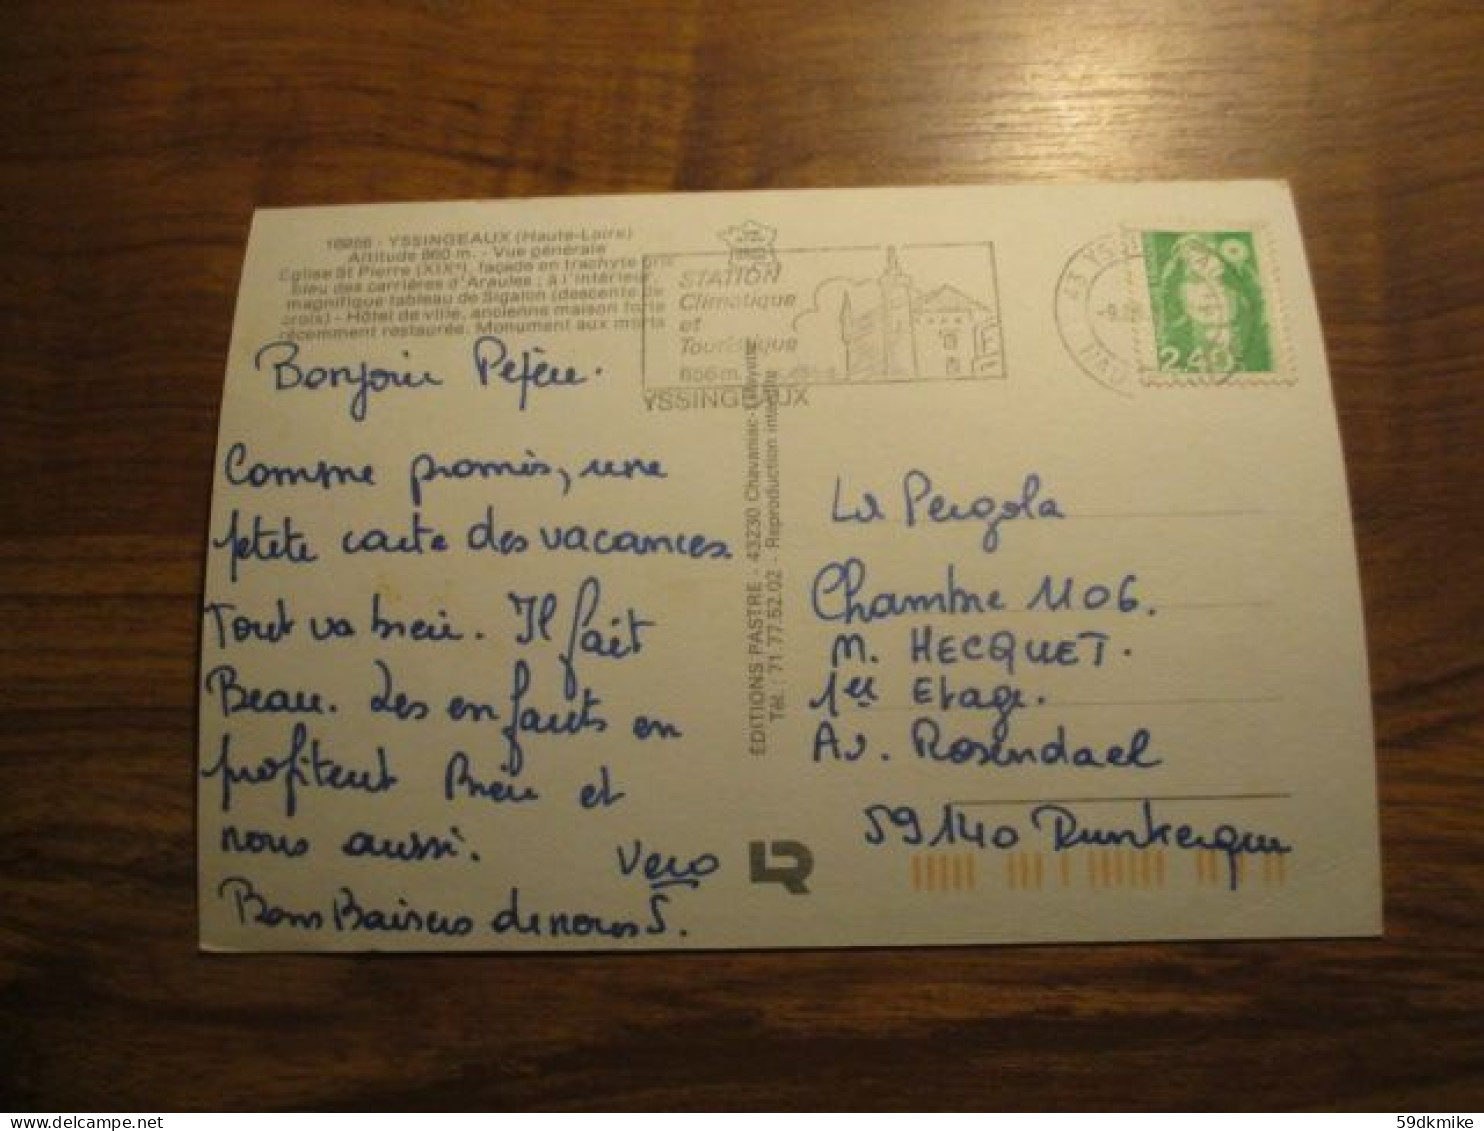 16056 - YSSINGEAUX (Haute-Loire)
Altitude 860 m. - Vue générale
Eglise St Pierre (XIXe), façade en trachyte gris
bleu des carrières d'Araules ; à l'intérieur
magnifique tableau de Sigalon (descente de
croix) - Hôtel de ville, ancienne maison forte
récemment restaurée. Monument aux morts
Bonjour Pépère.
Comme promis, une
petite carte des vacances.
Tout va bien. Il fait
Beau. Les enfants en
profitent Bien et
nous aussi.
Vero
Bons Baisers de nous 5.
STATION
Climatique
et
Touristique
856 m.
YSSINGEAUX
EDITIONS PASTRE - 43230 Chavaniac-Lafayette
Tél. : 71.77.52.02 - Reproduction interdite
LR
43 YS
2,40
La Pergola
Chambre 1106.
M. HECQUET.
1er Etage.
Av. Rosendael
59140 Dunkerque
59dkmike